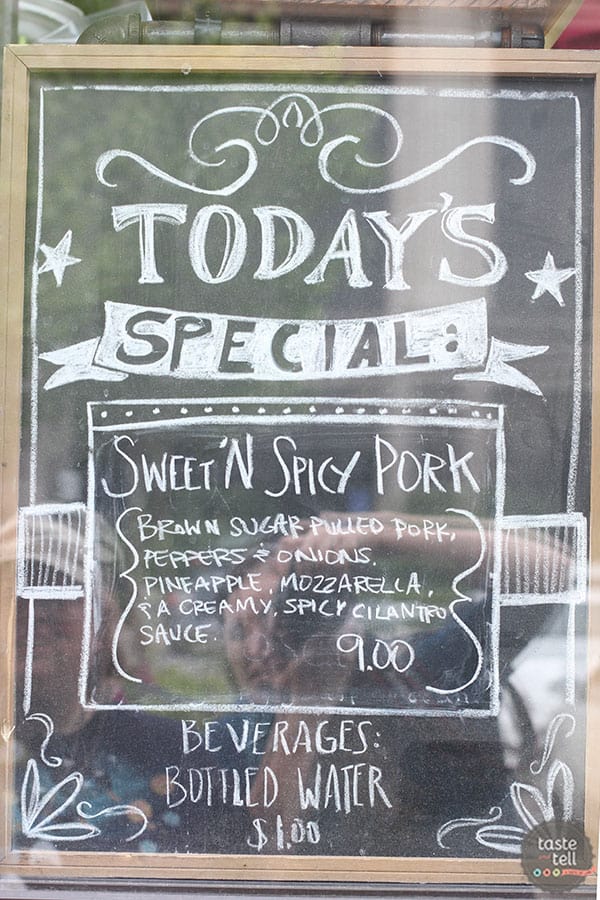 TODAY'S
SPECIAL:
SWEET 'N SPICY PORK
BROWN SUGAR PULLED PORK,
PEPPERS & ONIONS.
PINEAPPLE, MOZZARELLA,
& A CREAMY, SPICY CILANTRO
SAUCE.
9.00
BEVERAGES:
BOTTLED WATER
$1.00
taste
and
tell